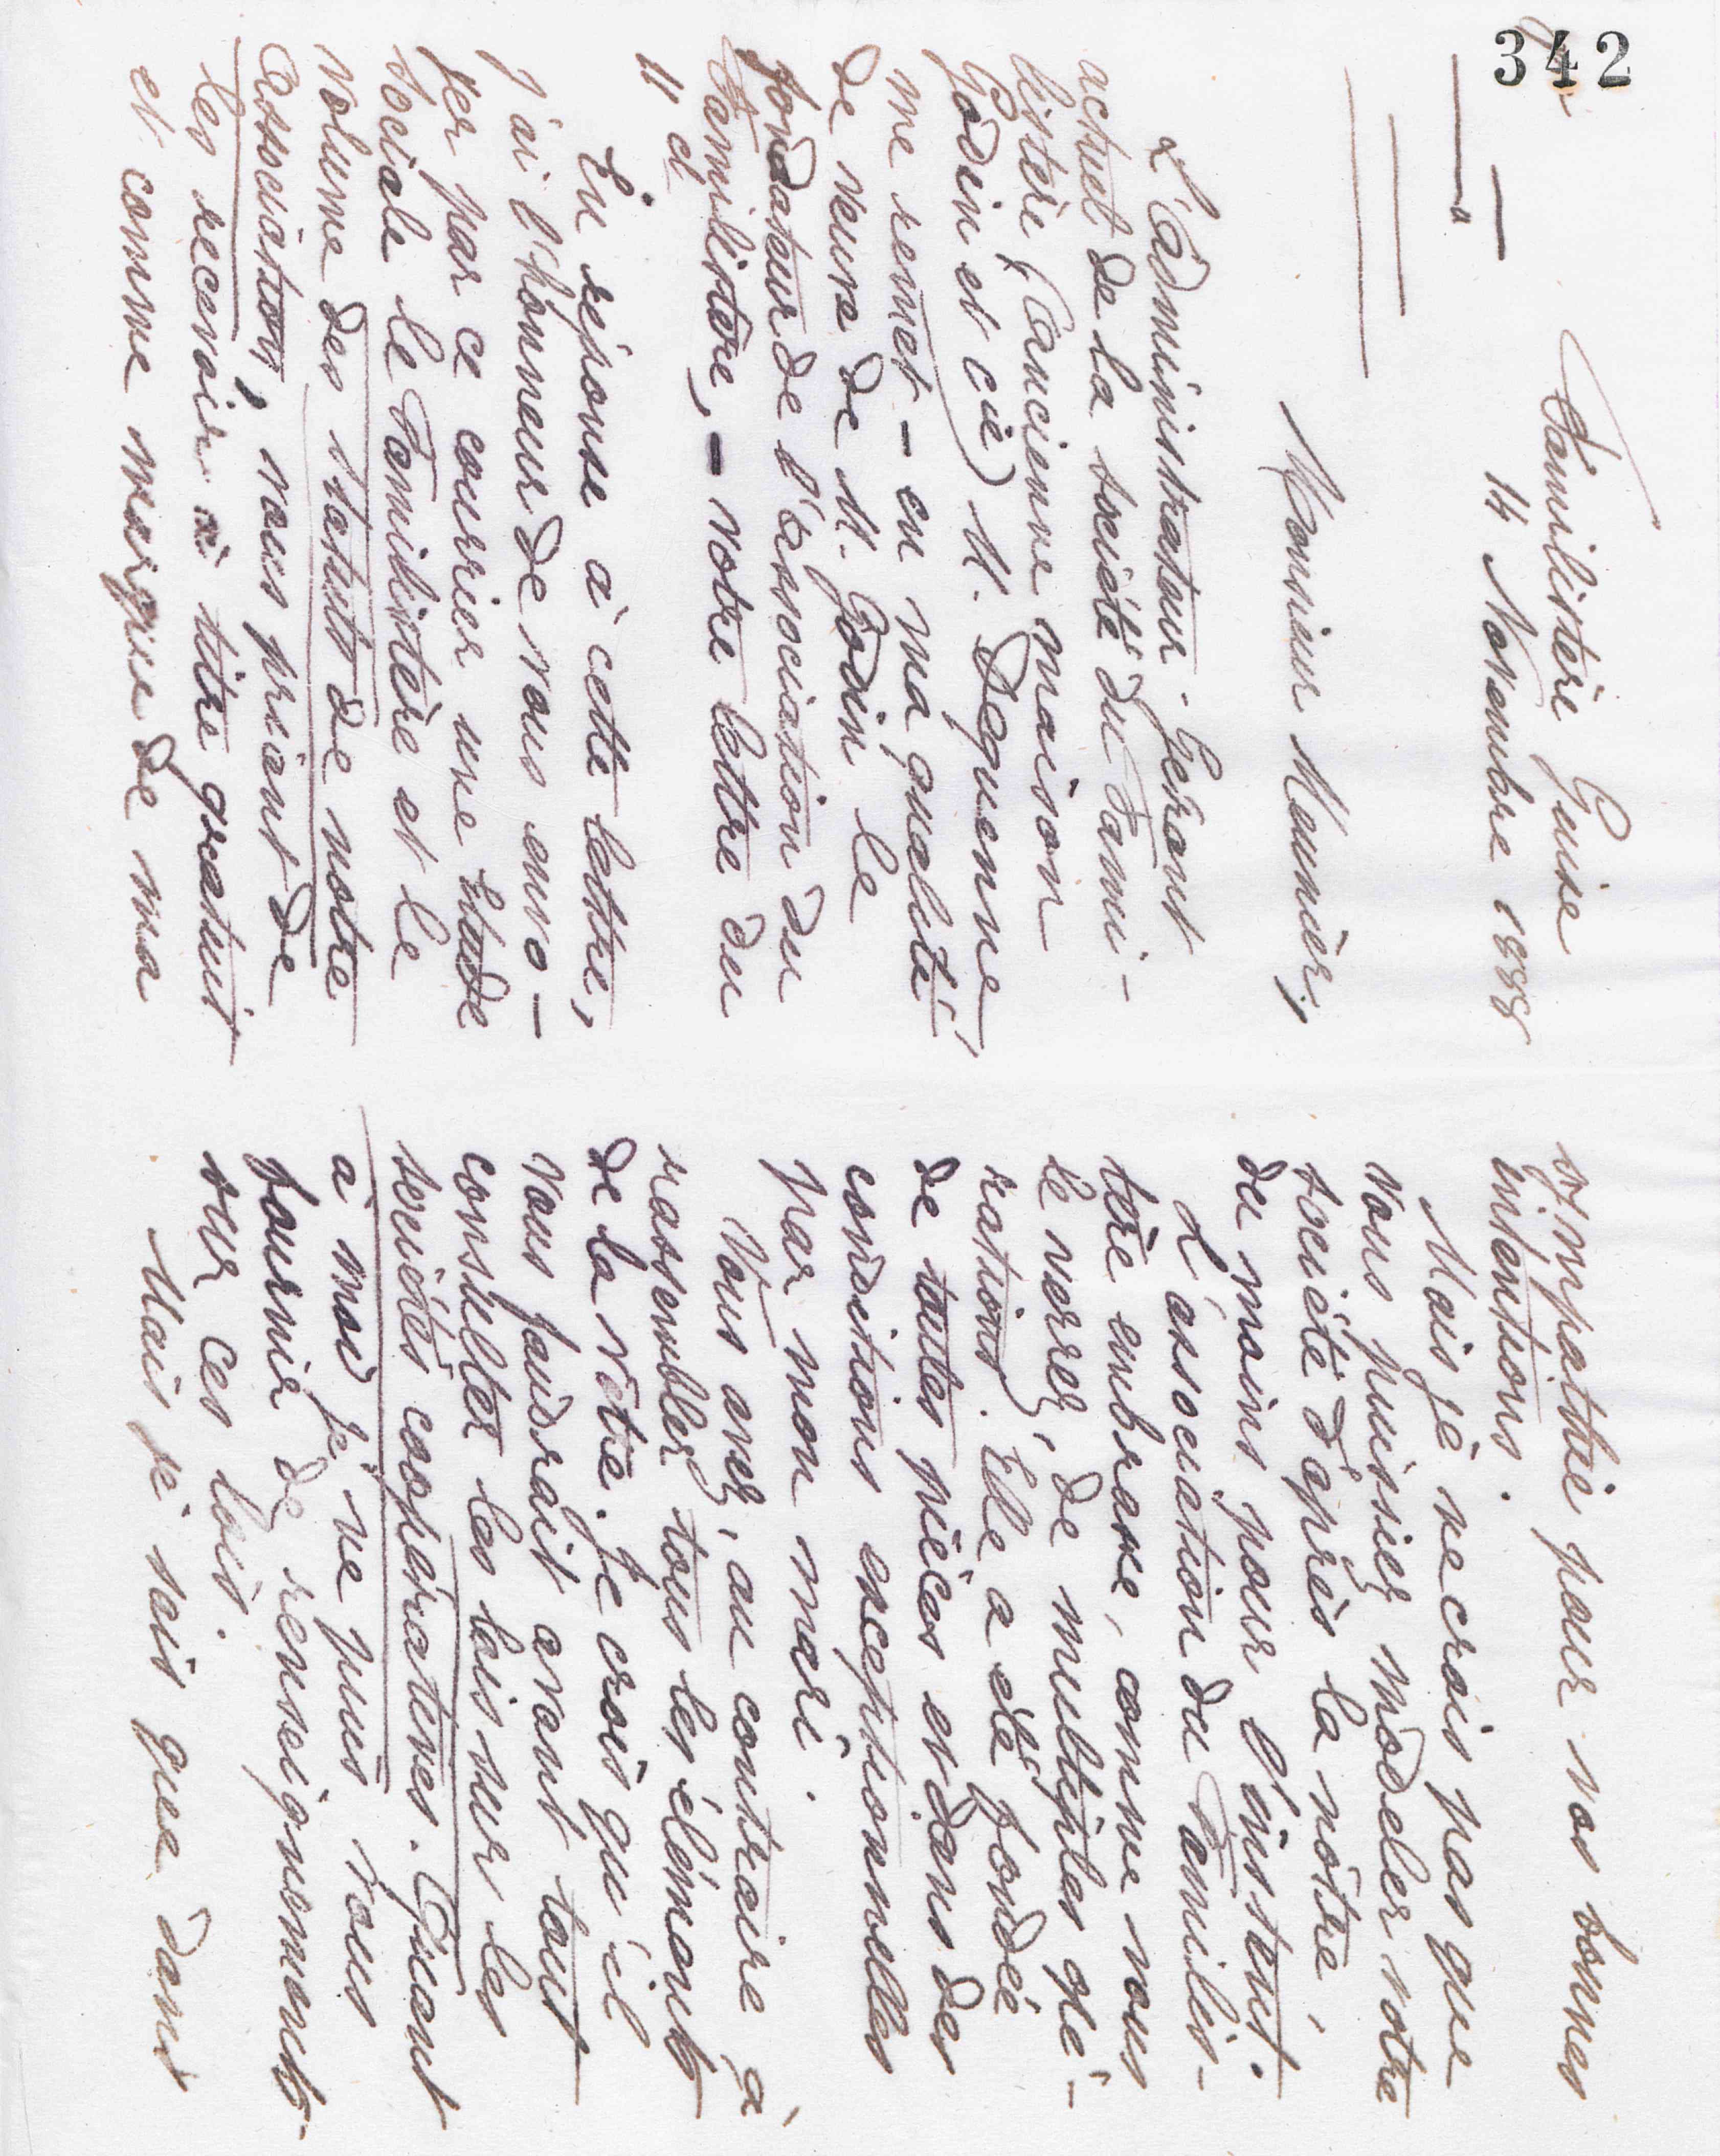 342
Familistère Guise
14 Novembre 1888
Monsieur Meunier,
L'administrateur-Gérant
actuel de la société du Fami-
listère (ancienne maison
Godin et Cie) M. Dequenne
me remet – en ma qualité
de veuve de M. Godin le
fondateur de l'association du
Familistère, – votre lettre du
11 ct
En réponse à cette lettre,
j'ai l'honneur de vous envo-
yer par ce courrier une Etude
sociale le Familistère et le
volume des statuts de notre
association, vous priant de
les recevoir à titre gratuit
et comme marque de ma
sympathie pour vos bonnes
intentions.
Mais je ne crois pas que
vous puissiez modeler votre
société d'après la nôtre,
du moins pour l'instant.
L'association du Familis-
tère embrasse, comme vous
le verrez, de multiples opé-
rations. Elle a été fondée
de toutes pièces et dans des
conditions exceptionnelles
par mon mari.
Vous avez, au contraire à
rassembler tous les éléments
de la vôtre. Je crois qu'il
vous faudrait avant tout
consulter les lois sur les
sociétés coopératives. Quant
à moi je ne puis vous
fournir de renseignements
sur ces lois.
Mais je sais que dans